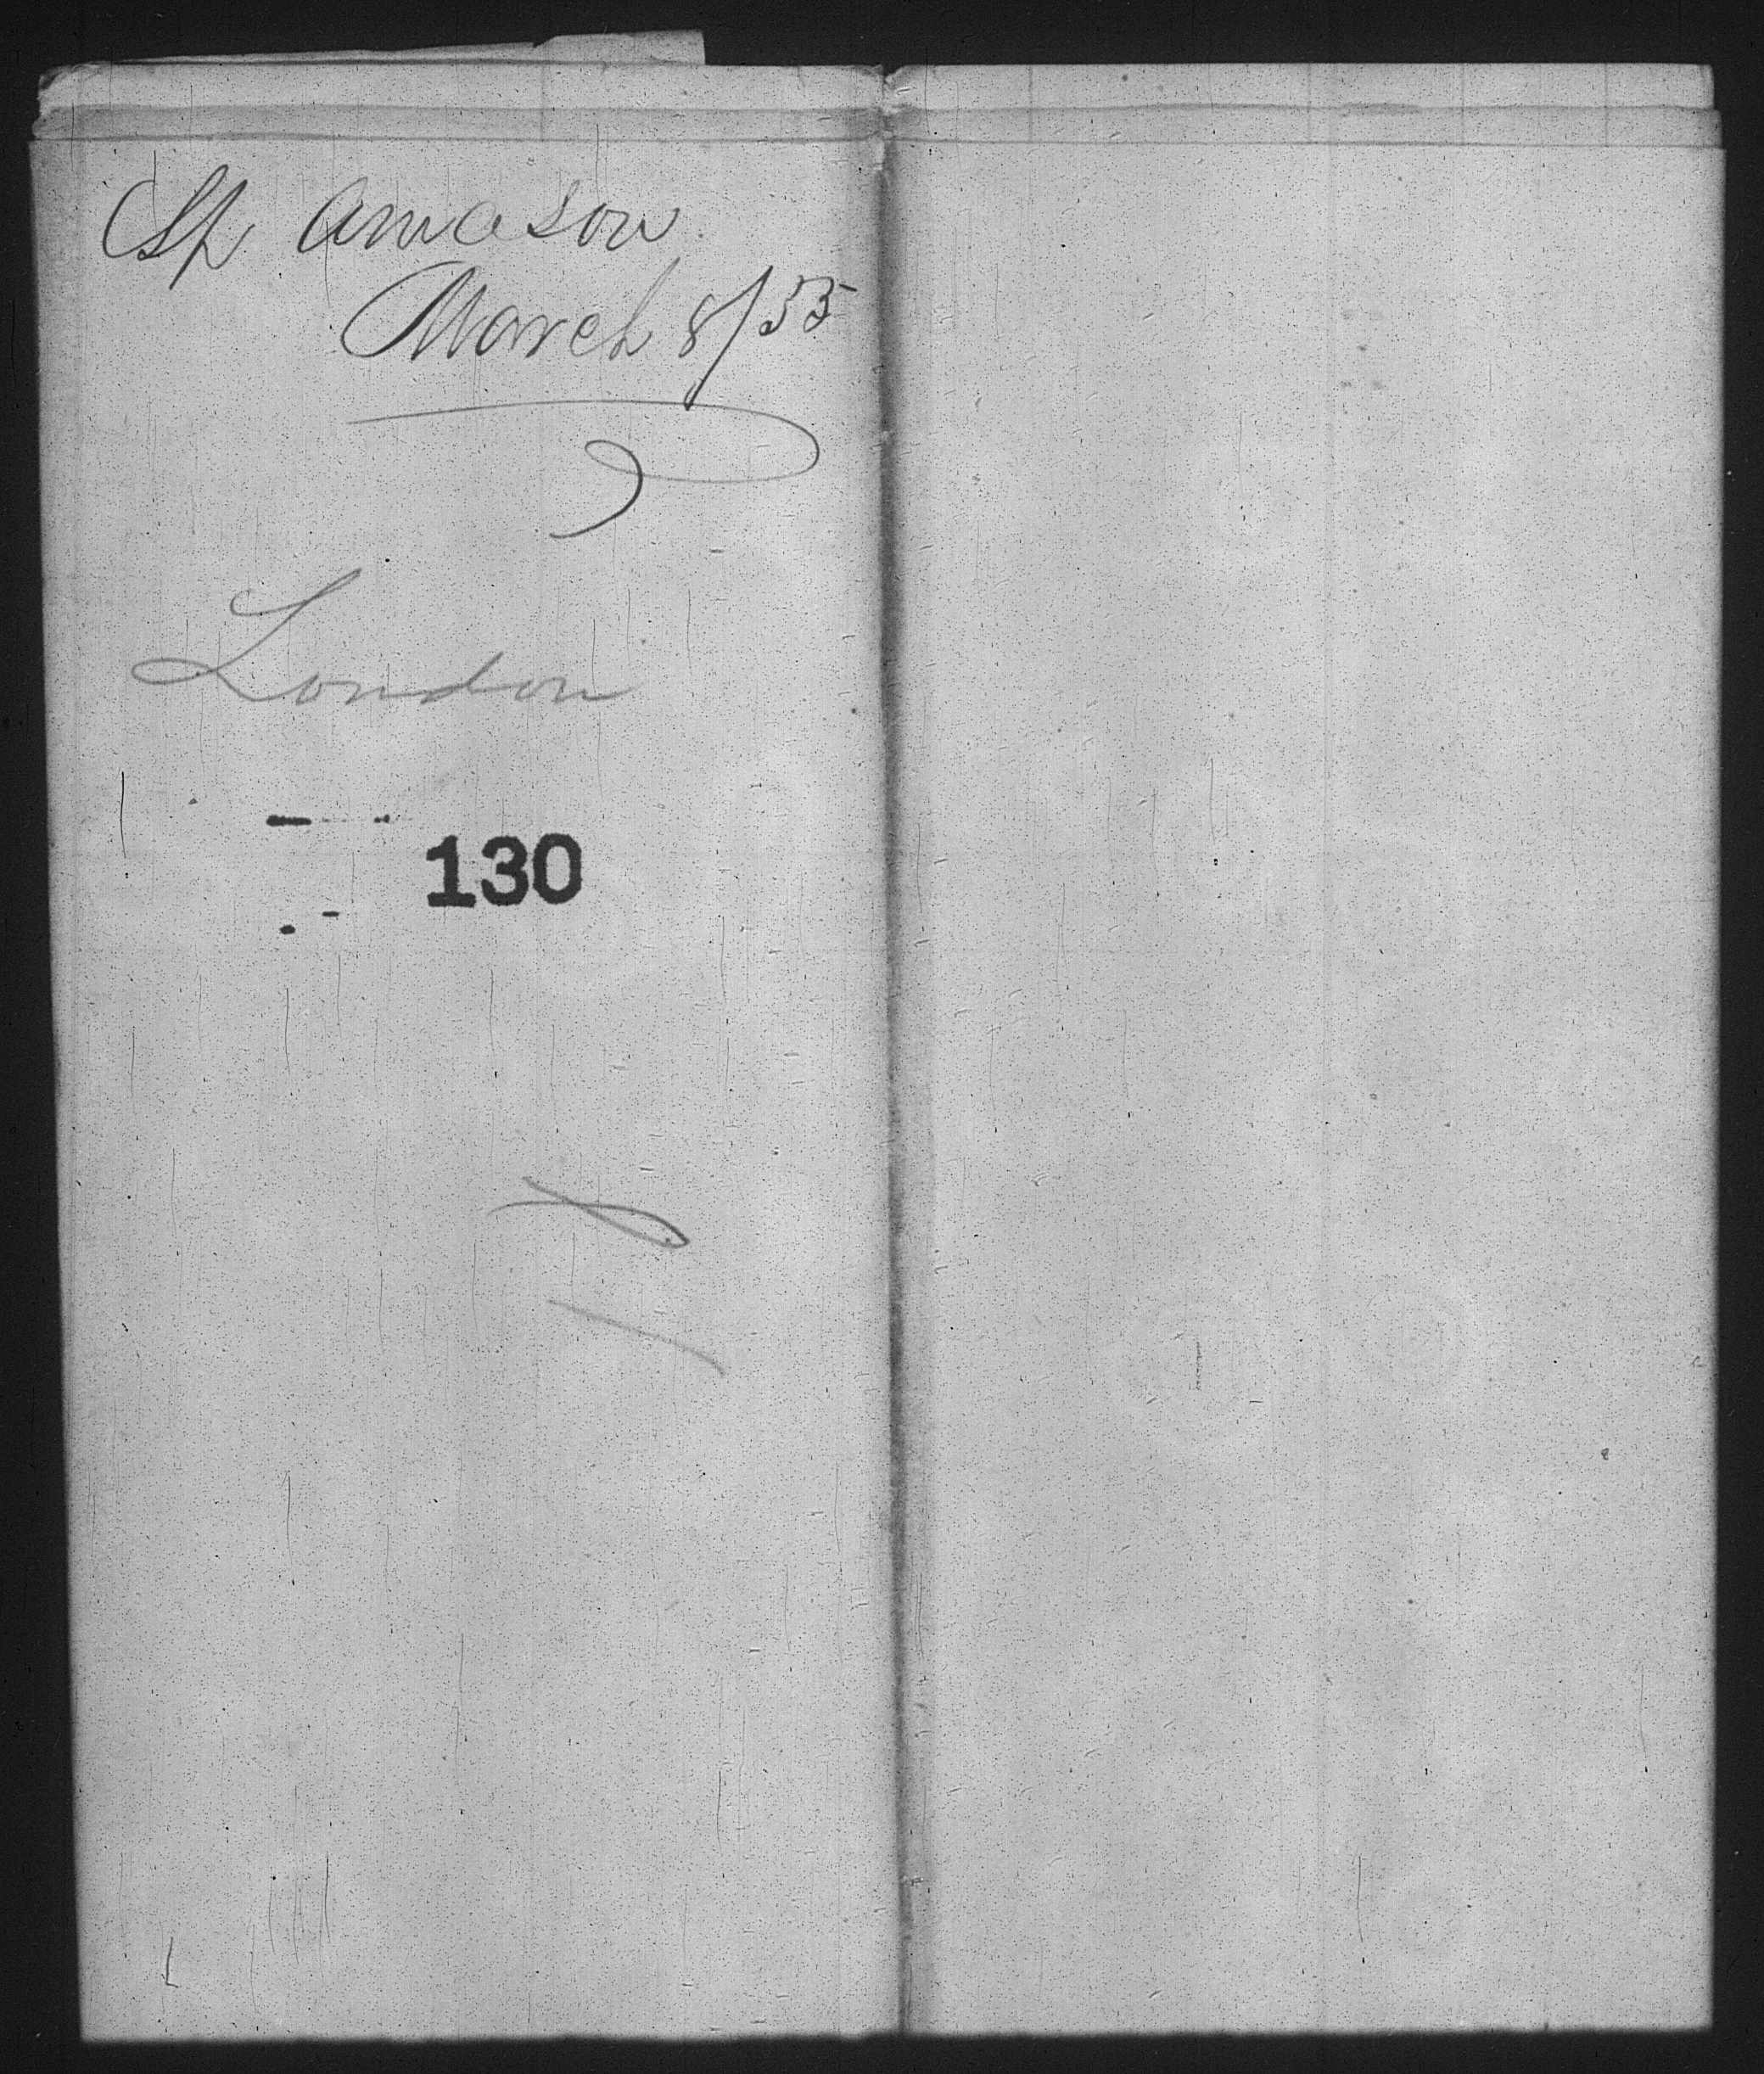 Sp Amason
March 8/55
London
130